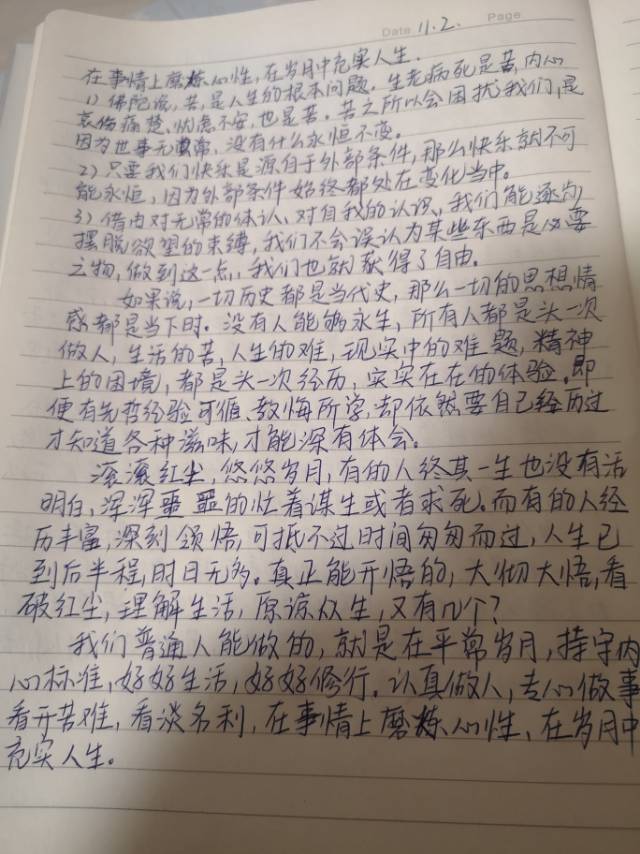 Date 11.2. Page
在事情上磨炼心性,在岁月中充实人生.
1) 佛陀说,苦,是人生的根本问题.生老病死是苦,内心
哀伤痛楚、忧虑不安,也是苦。苦之所以会困扰我们,是
因为世事无常,没有什么永恒不变。
2) 只要我们快乐是源自于外部条件,那么快乐就不可
能永恒,因为外部条件始终都处在变化当中。
3) 借由对无常的体认、对自我的认识,我们能逐为
摆脱欲望的束缚,我们不会误认为某些东西是必要
之物,做到这一点,我们也就获得了自由.
如果说,一切历史都是当代史,那么一切的思想情
感都是当下时.没有人能够永生,所有人都是头一次
做人,生活的苦,人生的难,现实中的难题,精神
上的困境,都是头一次经历,实实在在的体验.即
便有先哲经验可循、教悔所学,却依然要自己经历过
才知道各种滋味,才能深有体会。
滚滚红尘,悠悠岁月,有的人终其一生也没有活
明白,浑浑噩噩的忙着谋生或者求死。而有的人经
历丰富,深刻领悟,可抵不过时间匆匆而过,人生已
到后半程,时日无多。真正能开悟的,大彻大悟,看
破红尘,理解生活,原谅众生,又有几个?
我们普通人能做的,就是在平常岁月,持守内
心标准,好好生活,好好修行.认真做人,专心做事
看开苦难,看淡名利,在事情上磨炼心性,在岁月中
充实人生。